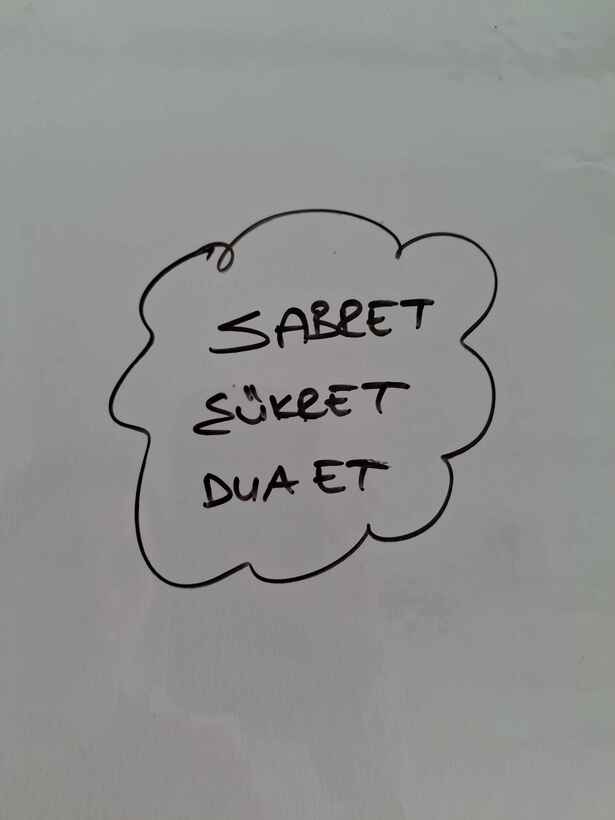 SABRET
ŞÜKRET
DUA ET